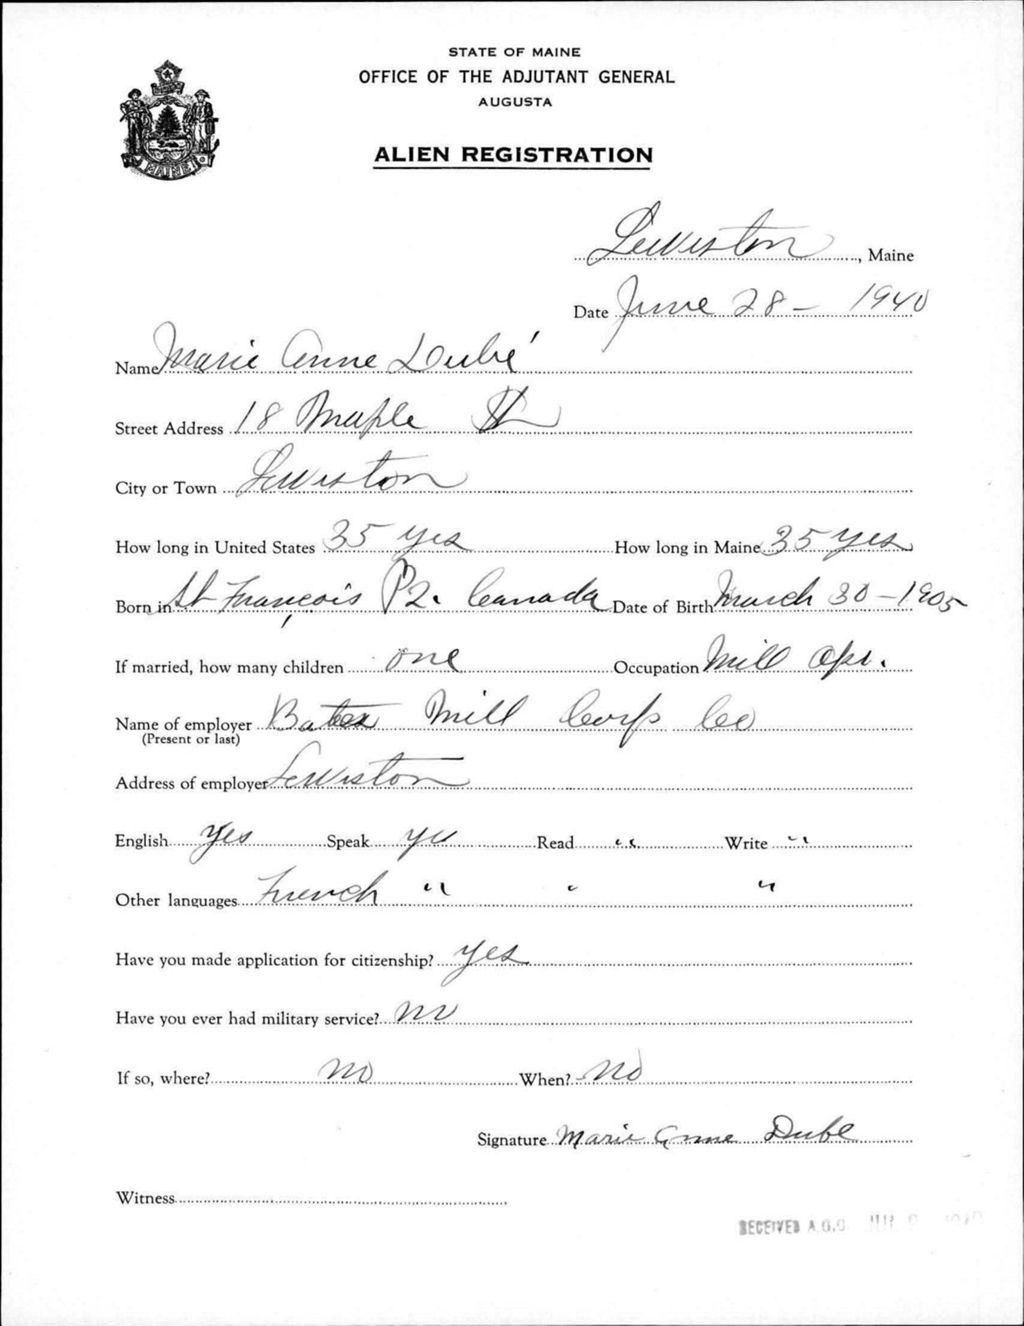 STATE OF MAINE
OFFICE OF THE ADJUTANT GENERAL
AUGUSTA
ALIEN REGISTRATION
MAINE
Lewiston, Maine
Date June 28 – 1940
Name Marie Anne Dubé
Street Address 18 Maple St
City or Town Lewiston
How long in United States 35 yrs How long in Maine 35 yrs
Born in St François P2. Canada Date of Birth March 30 – 1905
If married, how many children one Occupation Mill Opr.
Name of employer Bates Mill Corp Co
(Present or last)
Address of employer Lewiston
English yes Speak yes Read " Write "
Other languages French " " "
Have you made application for citizenship? yes
Have you ever had military service? no
If so, where? no When? no
Signature Marie Anne Dube
Witness
RECEIVED A.G.O.